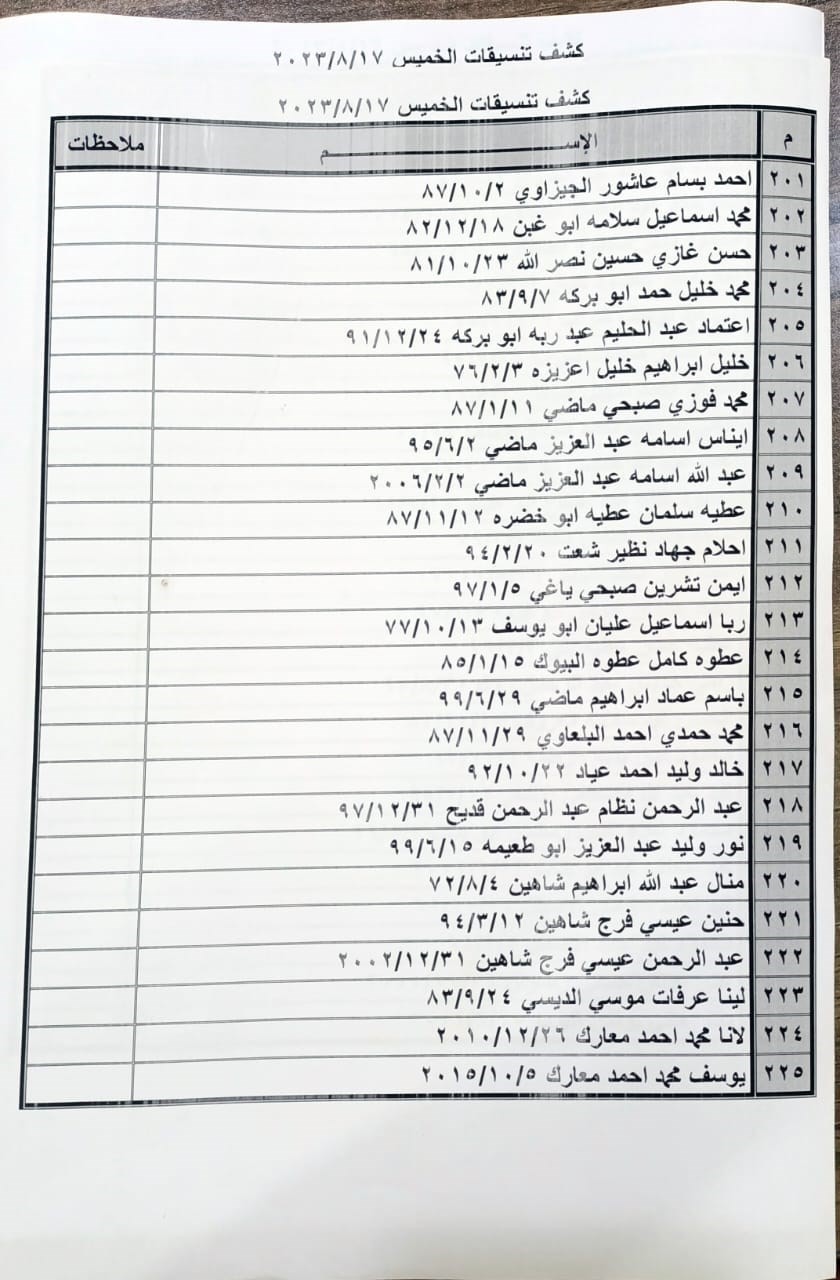 كشف تنسيقات الخميس ٢٠٢٣/٨/١٧
كشف تنسيقات الخميس ٢٠٢٣/٨/١٧
م الإســـــــــــــــــــــم ملاحظات
٢٠١ احمد بسام عاشور الجيزاوي ٨٧/١٠/٢
٢٠٢ محمد اسماعيل سلامه ابو غبن ٨٢/١٢/١٨
٢٠٣ حسن غازي حسين نصر الله ٨١/١٠/٢٣
٢٠٤ محمد خليل حمد ابو بركه ٨٣/٩/٧
٢٠٥ اعتماد عبد الحليم عبد ربه ابو بركه ٩١/١٢/٢٤
٢٠٦ خليل ابراهيم خليل اعزيزه ٧٦/٢/٣
٢٠٧ محمد فوزي صبحي ماضي ٨٧/١/١١
٢٠٨ ايناس اسامه عبد العزيز ماضي ٩٥/٦/٢
٢٠٩ عبد الله اسامه عبد العزيز ماضي ٢٠٠٦/٢/٢
٢١٠ عطيه سلمان عطيه ابو خضره ٨٧/١١/١٢
٢١١ احلام جهاد نظير شعت ٩٤/٢/٢٠
٢١٢ ايمن تشرين صبحي ياغي ٩٧/١/٥
٢١٣ ربا اسماعيل عليان ابو يوسف ٧٧/١٠/١٣
٢١٤ عطوه كامل عطوه البيوك ٨٥/١/١٥
٢١٥ باسم عماد ابراهيم ماضي ٩٩/٦/٢٩
٢١٦ محمد حمدي احمد البلعاوي ٨٧/١١/٢٩
٢١٧ خالد وليد احمد عياد ٩٢/١٠/٢٢
٢١٨ عبد الرحمن نظام عبد الرحمن قديح ٩٧/١٢/٣١
٢١٩ نور وليد عبد العزيز ابو طعيمه ٩٩/٦/١٥
٢٢٠ منال عبد الله ابراهيم شاهين ٧٢/٨/٤
٢٢١ حنين عيسي فرج شاهين ٩٤/٣/١٢
٢٢٢ عبد الرحمن عيسي فرج شاهين ٢٠٠٢/١٢/٣١
٢٢٣ لينا عرفات موسي الديسي ٨٣/٩/٢٤
٢٢٤ لانا محمد احمد معارك ٢٠١٠/١٢/٢٦
٢٢٥ يوسف محمد احمد معارك ٢٠١٥/١٠/٥